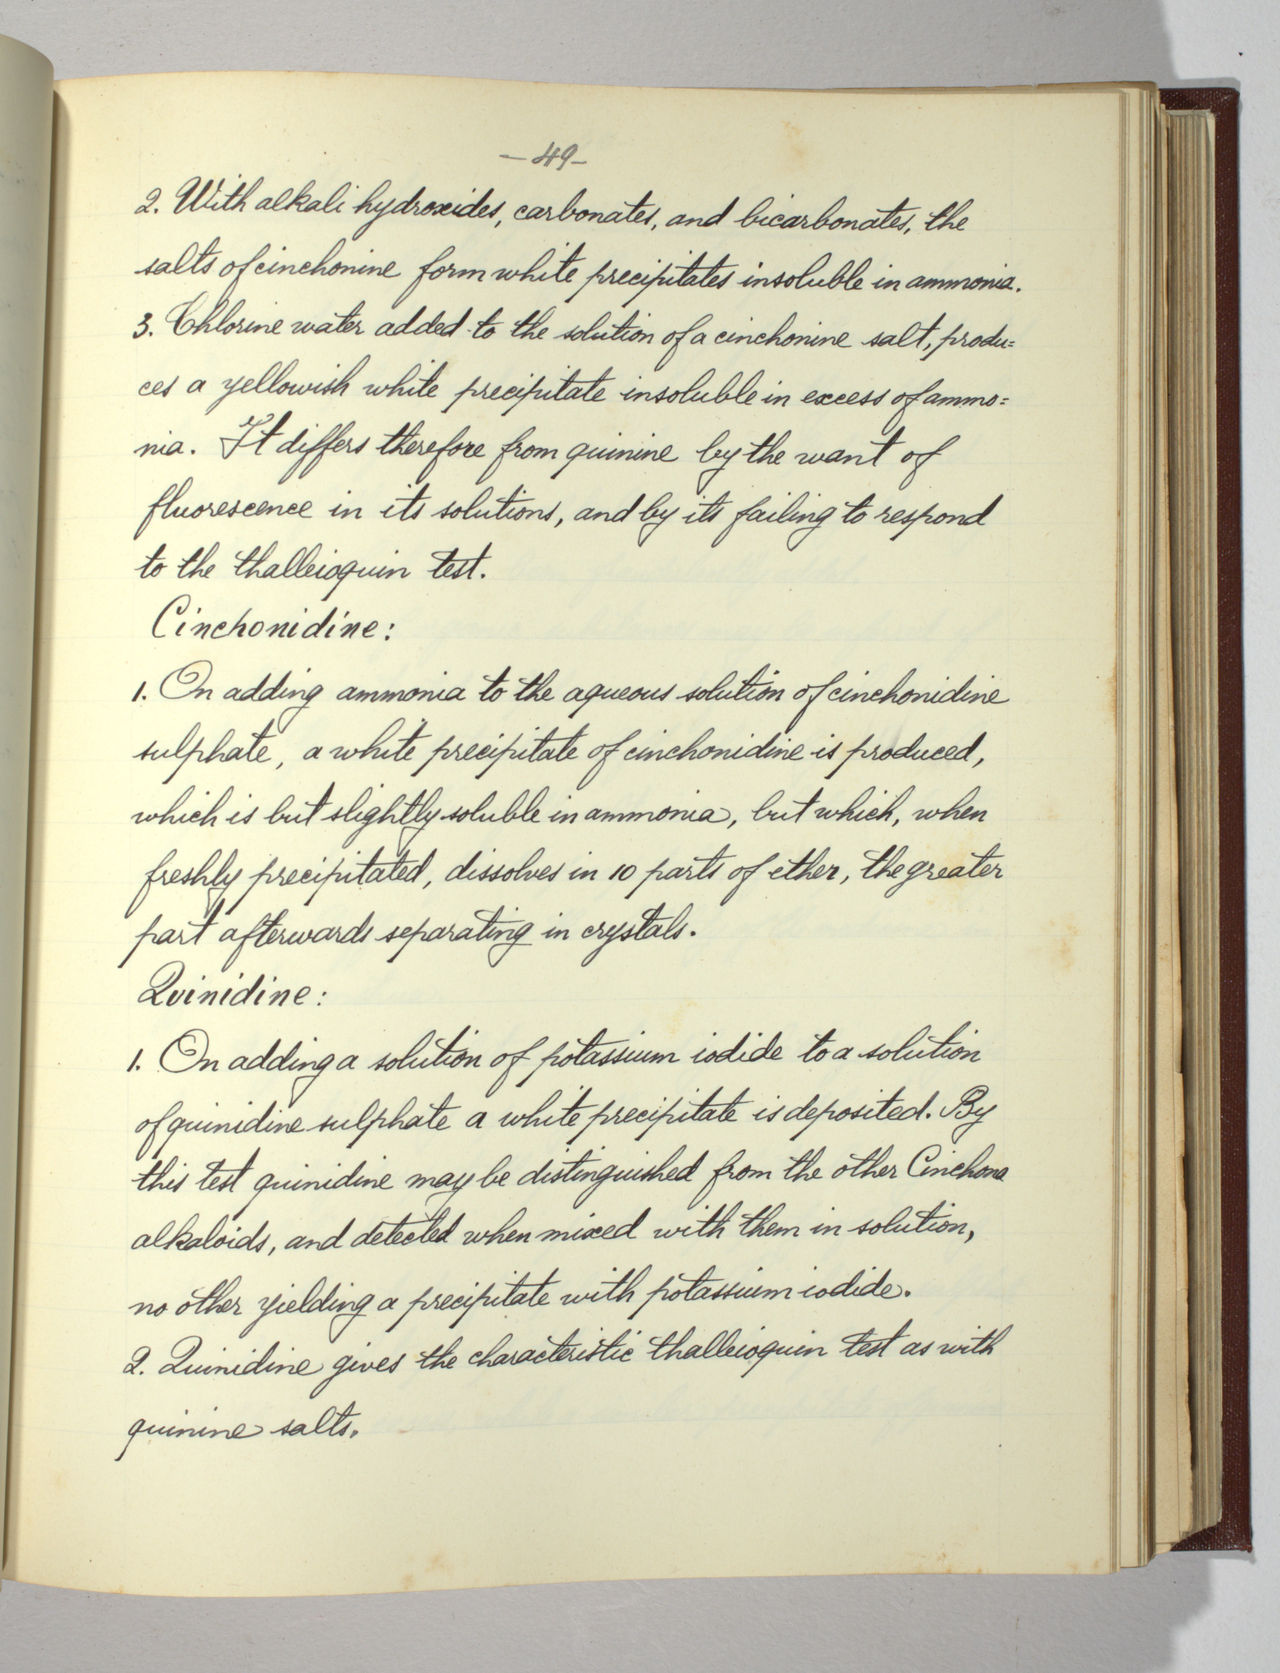 —49—
2. With alkali hydroxides, carbonates, and bicarbonates, the
salts of cinchonine form white precipitates insoluble in ammonia.
3. Chlorine water added to the solution of a cinchonine salt, produ=
ces a yellowish white precipitate insoluble in excess of ammo=
nia. It differs therefore from quinine by the want of
fluorescence in its solutions, and by its failing to respond
to the thalleioquin test.
Cinchonidine:
1. On adding ammonia to the aqueous solution of cinchonidine
sulphate, a white precipitate of cinchonidine is produced,
which is but slightly soluble in ammonia, but which, when
freshly precipitated, dissolves in 10 parts of ether, the greater
part afterwards separating in crystals.
Quinidine:
1. On adding a solution of potassium iodide to a solution
of quinidine sulphate a white precipitate is deposited. By
this test quinidine may be distinguished from the other Cinchona
alkaloids, and detected when mixed with them in solution,
no other yielding a precipitate with potassium iodide.
2. Quinidine gives the characteristic thalleioquin test as with
quinine salts.